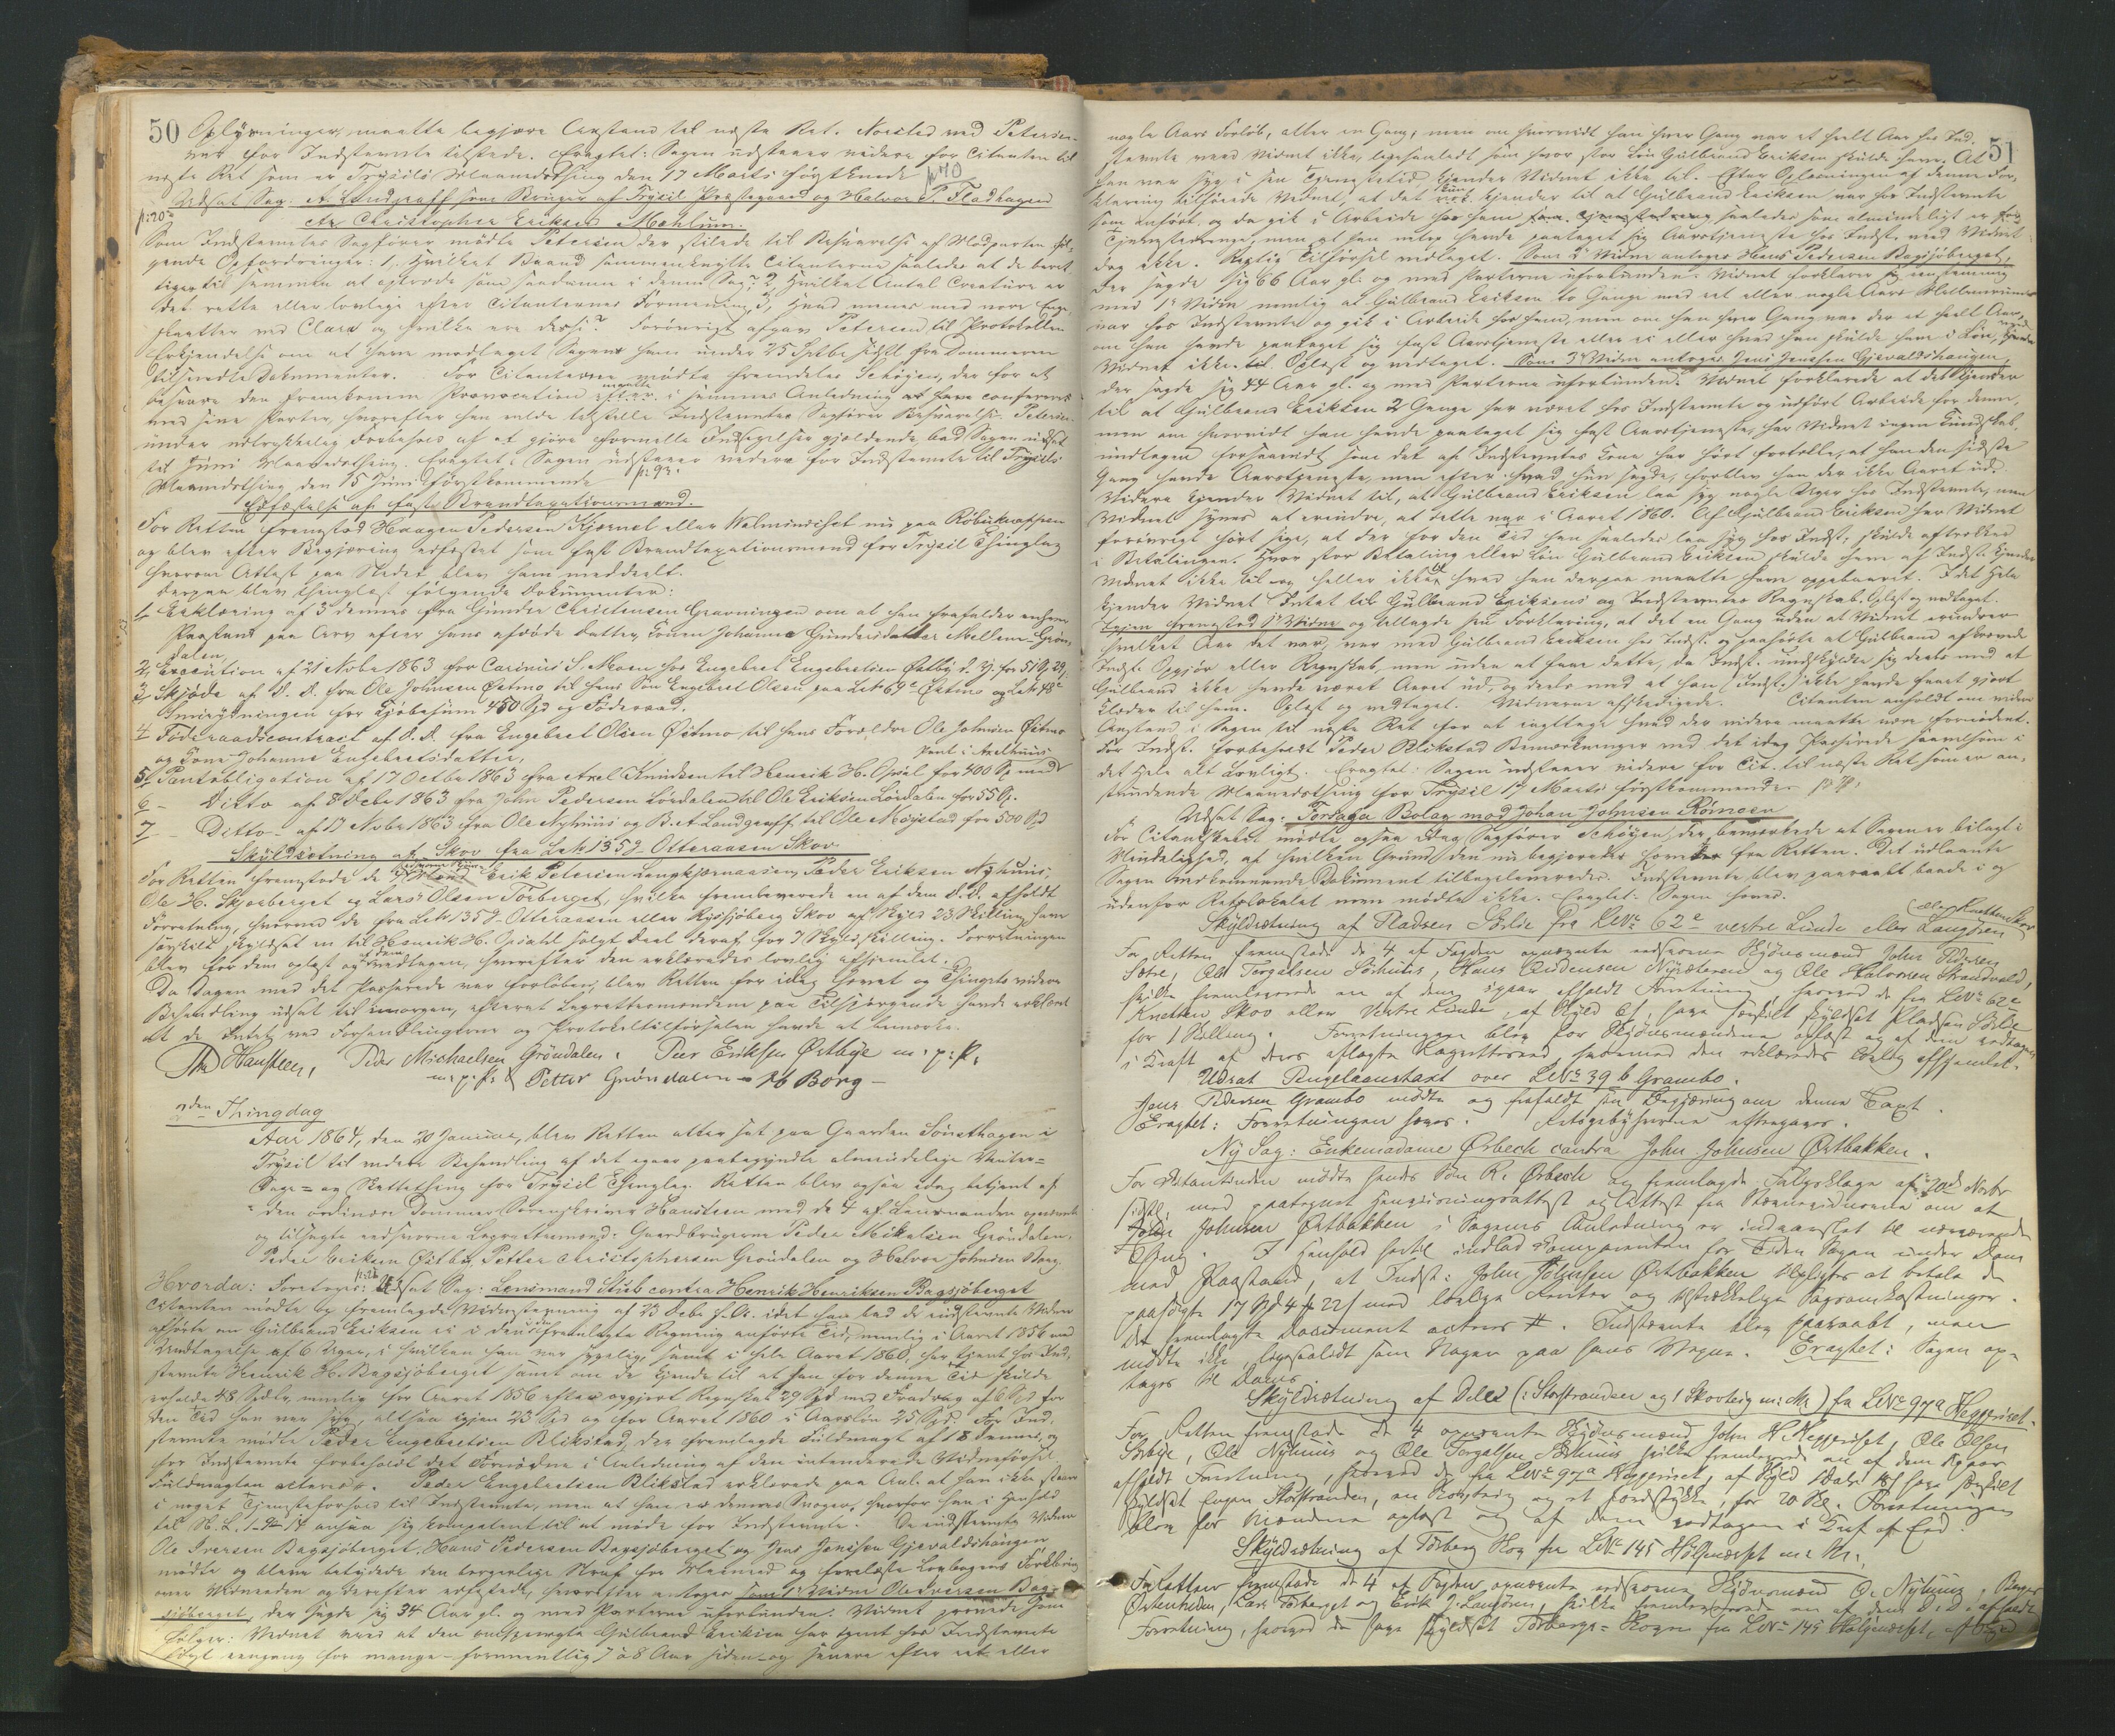 50
Oplysninger, maatte begjære Anstand til næste Ret. Noested ved Petersen
var for Indstevnte tilstede. Eragtet: Sagen udstaaer videre for Citanten til
næste Ret som er Trysils Maanedsthing den 17 Marts førstkomende p. 70
Udsat Sag. A. Landgraff som Bruger af Trysil Præstegaard og Halvor P. Fladhagen
p: 20 ctr Christopher Eriksen Mæhlum.
Som Indstevntes Sagfører mødte Petersen der stilede til Besvarelse af Modparten føl-
gende Opfordringer: 1, Hvilket Baand sammenknytte Citanterne saaledes at de beret-
tiges til sammen at optræde som saadanne i denne Sag? 2, Hvilket Antal Creature er
det rette eller lovlige efter Citanternes Formening, 3, Hvad menes med vore Enge-
slaatter ved Clara og hvilke ere disse? Forøvrigt afgav Petersen til Protokollen
Erkjendelse om at have modtaget Sagens ham under 25 Septbr sidstl. fra Dommeren
tilsendte Dokumenter. For Citanterne mødte fremdeles Schøyen, der for at
besvare den fremkomne Provocation maatte i sammes Anledning conferere
med sine Parter, hvorefter han vilde tilstille Indstevntes Sagfører Besvarelse. Petersen
under udtrykkelig Forbehold af at gjøre formelle Indsigelser gjældende bad Sagen udsat
til Juni Maanedsthing. Eragtet: Sagen udstaaer videre for Indstevnte til Trysils
Maanedsthing den 15 Juni førstkommende p: 93.
Edfæstelse af fast Brandtaxationsmand.
For Retten fremstod Haagen Pedersen Kjernet eller Walmindiset nu paa Røbæknappen
og blev efter Begjæring edfæstet som fast Brandtaxationsmand for Trysil Thinglag
hvorom Attest paa Stedet blev ham meddeelt.
Derpaa blev thinglæst følgende Dokumenter:
1, Erklæring af 3 dennes fra Gunder Christensen Gravningen om at han frafalder enhver
Paastand paa Arv efter hans afdøde Datter, Konen Johanne Gundersdatter Mellem-Grøn-
dalen.
2, Execution af 21 Novbr 1863 for Carinus S. Moen hos Engebret Engebretsen Østby d. y. for 51 Sp 29
3 Skjøde af D. D. fra Ole Johnsen Østmo til hans Søn Engebret Olsen paa LNr 69c Østmo og LNr 48c
Smirydningen for Kjøbesum 450 Spd og Føderaad.
4 Føderaadscontract af D. D. fra Engebret Olsen Østmo til hans Forældre Ole Johnsen Østmo
og Kone Johanne Engebretsdatter,
5, Pantobligation af 17 Octbr 1863 fra Axel Knudsen til Henrik H. Opsal for 400 Sp med Pant i Axelhuus
6 – Ditto af 8 Decbr 1863 fra John Pedersen Lørdalen til Ole Eriksen Lørdalen for 55 Sp.
7 – Ditto – af 17 Novbr 1863 fra Ole Nyhuus og B. A. Landgraff til Ole Møystad for 500 Spd
Skyldsætning af Skov fra LNr 135g Otteraasen Skov
For Retten fremstode de Mænd Erik Petersen Langkjernaasen, Peder Eriksen Nyhuus,
Ole H. Skjærberget og Lars Olsen Törberget, hvilke fremleverede en af dem d. D. afholdt
Forretning, hvorved de fra LNr 135g Otteraasen eller Rysjøberg Skov af Skyld 23 Skilling have
særskilt skyldsat en til Henrik H. Opsahl solgt Deel deraf for 3 Skyldskilling. Forretningen
blev for dem oplæst og af dem vedtagen, hvorefter den erklæredes lovlig afhjemlet.
Da Dagen med det Passerede var forløben, blev Retten for idag hævet og Thingets videre
Behandling udsat til imorgen, efterat Lagrettesmændene paa Tilspørgende havde erklæret
at de Intet ved Forhandlingerne og Protokoltilførselen havde at bemærke.
Th Hansteen, Peder Michaelsen Gröndalen. Peer Eriksen Østbye m: p: P.
m: p: P: Petter Gröndalen – H b Borg –
2den Thingdag
Aar 1864, den 20 Januar, blev Retten atter sat paa Gaarden Sönsthagen i
Trysil til videre Behandling af det igaar paabegyndte almindelige Vinter-
Sage- og Skattething for Trysil Thinglag. Retten blev ogsaa idag betjent af
den ordinære Dommer Sorenskriver Hansteen med de 4 af Lensmanden opnævnte
og tilsagte eedsvorne Lagrettesmænd: Gaardbrugerne Peder Mikkelsen Gröndalen,
Peder Eriksen Östby, Petter Christophersen Gröndalen og Halvor Johnsen Borg.
Hvorda: Foretoges Udsat Sag: Lensmand Stub contra Henrik Henriksen Bagsjöberget
Citanten mødte og fremlagde Vidnestevning af 23 Decbr f. A. idet han bad de indstevnte Vidner
afhørte om Gulbrand Eriksen ei i den i den fremlagte Regning anførte Tid, nemlig i Aaret 1856 med
Undtagelse af 6 Uger, i hvilken han var sygelig, samt i hele Aaret 1860, har tjent hos Ind-
stevnte Henrik H. Bagsjöberget samt om de kjende til at han for denne Tid skulde
erholde 48 Spdlr, nemlig for Aaret 1856 efter opgjort Regnskab 29 Spd med Fradrag af 6 Spd for
den Tid han var syg, altsaa igjen 23 Spd og for Aaret 1860 i Aarsløn 25 Spd. For Ind-
stevnte mødte Peder Engebretsen Blikstad, der fremlagde Fuldmagt af 18 dennes, og
for Indstevnte forbeholdt det Fornødne i Anledning af den intenderede Vidneførsel.
Fuldmagten acteres. Peder Engebretsen Blikstad erklærede paa Anl. at han ikke staaer
i noget Tjenesteforhold til Indstevnte, men at han er dennes Svoger, hvorfor han i Henhold
til N. L. 1-9-14 ansaa sig kompetent til at møde for Indstevnte. De indstevnte Vidner
Ole Iversen Bagsjöberget, Hans Pedersen Bagsjöberget og Jens Jenssen Gjevaldshaugen
mødte og bleve betydede den borgerlige Straf for Meened og forelæste Lovbogens Forklaring
over Vidneeden og derefter edfæstede, hvorefter antoges som 1ste Vidne Ole Iversen Bag-
sjöberget, der sagde sig 34 Aar gl. og med Parterne uforbunden. Vidnet provede som
følger: Vidnet veed at den omspurgte Gulbrand Eriksen har tjent hos Indstevnte
først eengang for mange – formentlig 7 à 8 Aar siden – og senere efter eet eller
51
nogle Aars Forløb, atter en Gang; men om hvorvidt han hver Gang var et heelt Aar hos Ind-
stevnte veed Vidnet ikke, ligesaalidt som hvor stor Løn Gulbrand Eriksen skulde have. At
han var syg i sin Tjenestetid kjender Vidnet ikke til. Efter Oplæsningen af denne For-
klaring tilførede Vidnet, at det kun kjender til at Gulbrand Eriksen var hos Indstevnte
som anført og da gik i Arbeide hos ham saaledes som almindeligt er for
Tjenestedrenge, men at han netop havde paataget sig Aarstjeneste hos Indst. veed Vidnet
dog ikke. Rigtig Tilførsel vedtaget. Som 2t Vidne antoges Hans Pedersen Bagsjöberget,
der sagde sig 66 Aar gl. og med Parterne uforbunden. Vidnet forklarer sig eenstemmig
med 1ste Vidne nemlig at Gulbrand Eriksen to Gange med eet eller nogle Aars Mellemrum
var hos Indstevnte og gik i Arbeide hos ham, men om han hver Gang var der et heelt Aar,
om han havde paataget sig fast Aarstjeneste eller ei eller hvad han skulde have i Løn, veed
Vidnet ikke. Oplæst og vedtaget. Som 3t Vidne antoges Jens Jenssen Gjevaldshaugen,
der sagde sig 44 Aar gl. og med Parterne uforbunden. Vidnet forklarede at det kjender
til at Gulbrand Eriksen 2 Gange har været hos Indstevnte og udført Arbeide for denne,
men om hvorvidt han havde paataget sig fast Aarstjeneste, har Vidnet ingen Kundskab,
undtagen forsaavidt som det af Indstevntes Kone har hørt fortælle, at han den sidste
Gang havde Aarstjeneste, men efter hvad hun sagde, forblev han der ikke Aaret ud.
Videre kjender Vidnet til, at Gulbrand Eriksen laa syg nogle Uger hos Indstevnte, men
Vidnet synes at erindre, at dette var i Aaret 1860. Af Gulbrand Eriksen har Vidnet
forøvrigt hørt sige, at der for den Tid han saaledes laa syg hos Indst. skulde aftrækkes
i Betalingen. Hvor stor Betaling eller Løn Gulbrand Eriksen skulde have af Indst. kjender
Vidnet ikke til og heller ikke til hvad han derpaa maatte have oppebaaret. I det Hele
kjender Vidnet Intet til Gulbrand Eriksens og Indstevntes Regnskab. Oplæst og vedtaget.
Igjen fremstod 1ste Vidne og tillagde sin Forklaring, at det en Gang uden at Vidnet erindrer
hvilket Aar det var, var med Gulbrand Eriksen hos Indst. og paahørte at Gulbrand afkrævede
Indst. Opgjør eller Regnskab, men uden at faae dette, da Indst. undskyldte sig deels med at
Gulbrand ikke havde været Aaret ud, og deels med at han (Indst.) ikke havde faaet gjort
Klæder til ham. Oplæst og vedtaget. Vidnerne afskedigede. Citanten anholdt om videre
Anstand i Sagen til næste Ret for at iagttage hvad der videre maatte være fornødent.
For Indst. forbeholdt Peder Blikstad Bemærkninger ved det idag Passerede saavelsom i
det Hele alt Lovligt. Eragtet: Sagen udstaaer videre for Cit. til næste Ret som er an-
stundende Maanedsthing for Trysil 17 Marts førstkommende
Udsat Sag: Fordaga Bolag mod Johan Johnsen Rømoen
For Citantskabet mødte ogsaa idag Sagfører Schøyen, der bemærkede at Sagen er bilagt i
Mindelighed, af hvilken Grund den nu begjæredes hævet fra Retten. Det udlaante
Sagen vedkommende Dokument tilbageleveredes. Indstevnte blev paaraabt baade i og
udenfor Retslocalet men mødte ikke. Eragtet: Sagen hæves.
Skyldsætning af Pladsen Sølie fra LNr. 62e vestre Lunde eller Langsøen eller Knetten Skov
For Retten fremstode de 4 af Fogden opnævnte eedsvorne Skjönsmænd John Pedersen
Sætre, Ole Torgalsen Sörhuus, Hans Amundsen Nysæteren og Ole Halvorsen Strandvold,
hvilke fremleverede en af dem igaar afholdt Forretning hvorved de fra LNr. 62e
Knetten Skov eller Vestre Lunde, af Skyld 6 s, have særskilt skyldsat Pladsen Sölie
for 1 Skilling. Forretningen blev for Skjönsmændene oplæst og af dem vedtagen
i Kraft af deres aflagte Lagrettesed, hvormed den erklæredes lovlig afhjemlet.
Udsat Pengelaanstaxt over LNr. 39 b Grambo.
Jens Pedersen Grambo mödte og frafaldt sin Begjæring om denne Taxt.
Eragtet: Forretningen hæves. Retsgebyhrerne eftergaves.
Ny Sag: Enkemadame Ørbech contra John Johnsen Østbakken.
For Citantinden mödte hendes Sön R. Ørbech og fremlagde Forligsklage af 20de Novbr
sidstl. med paategnet Henvisningsattest og Attest fra Stævnevidnerne om at
John Johnsen Østbakken i Sagens Anledning er indvarslet til nærværende
Thing. I Henhold hertil indlod Komparenten for Tiden Sagen under Dom
med Paastand, at Indst: John Johnsen Østbakken tilpligtes at betale de
paasögte 17 Spd 4 ß 22 s med lovlige Renter og tilstrækkelige Sagsomkostninger.
Det fremlagte Document acteres #. Indstævnte blev paaraabt, men
mödte ikke, ligesaalidt som Nogen paa hans Vegne. Eragtet: Sagen op-
tages til Doms.
Skyldsætning af Dele (: Storstranden og 1 Skovteig m: M) fra LNr. 97a Heggeriset.
For Retten fremstode de 4 opnævnte Skjönsmænd John H. Heggeriset, Ole Olsen
Sörbye, Ole Nyhuus og Ole Torgalsen Sörhuus hvilke fremleverede en af dem igaar
afholdt Forretning, hvorved de fra LNr. 97a Heggeriset, af Skyld 1 Daler 18 s have særskilt
skyldsat Engen Storstranden, en Skovteig og et Jordstykke, for 20 Sk. Forretningen
blev for Mændene oplæst og af dem vedtagen i Kraft af Eed.
Skyldsætning af Törberg Skov fra LNr. 145 Hölgnæset m: M.
For Retten fremstode de 4 af Fogden opnævnte eedsvorne Skjönsmænd O. Nyhuus, Berger
Østenheden, Lars Törberget og Erik P. Langsöen, hvilke fremleverede en af dem d. D. afholdt
Forretning, hvorved de have skyldsat Törbergs-Skoven fra LNr. 145 Hölgnæset, af Skyld